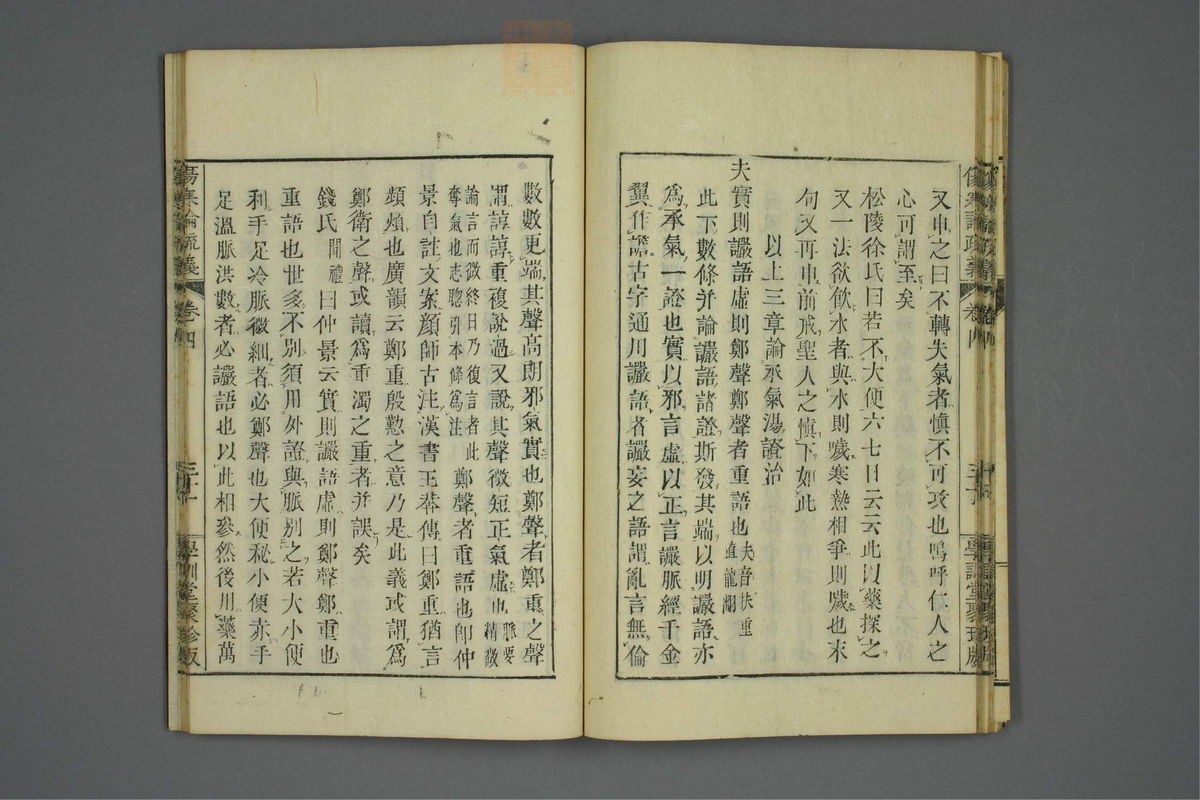 又申之曰不轉失氣者慎不可攻也嗚呼仁人之
心可謂至矣
松陵徐氏曰若不大便六七日云云此以藥探之
又一法欲飲水者與水則噦寒熱相爭則噦也末
句又再申前戒聖人之慎下如此
以上三章論承氣湯證治
夫實則讝語虛則鄭聲鄭聲者重語也夫音扶重直龍翻
此下數條并論讝語諸證斯發其端以明讝語亦
為承氣一證也實以邪言虛以正言讝脈經千金
翼作譫古字通用讝語者讝妄之語謂亂言無倫
數數更端其聲高朗邪氣實也鄭聲者鄭重之聲
謂諄諄重複說過又說其聲微短正氣虛也脈要精微
論言而微終日乃復言者此奪氣也志聰引本條為注鄭聲者重語也即仲
景自註文案顏師古注漢書王莽傳曰鄭重猶言
頻煩也廣韻云鄭重殷懃之意乃是此義或謂為
鄭衛之聲或讀為重濁之重者并誤矣
錢氏聞禮曰仲景云實則讝語虛則鄭聲鄭重也
重語也世多不別須用外證與脈別之若大小便
利手足冷脈微細者必鄭聲也大便秘小便赤手
足溫脈洪數者必讝語也以此相參然後用藥萬
傷寒論疏義 卷四
三十
學訓堂聚珍版